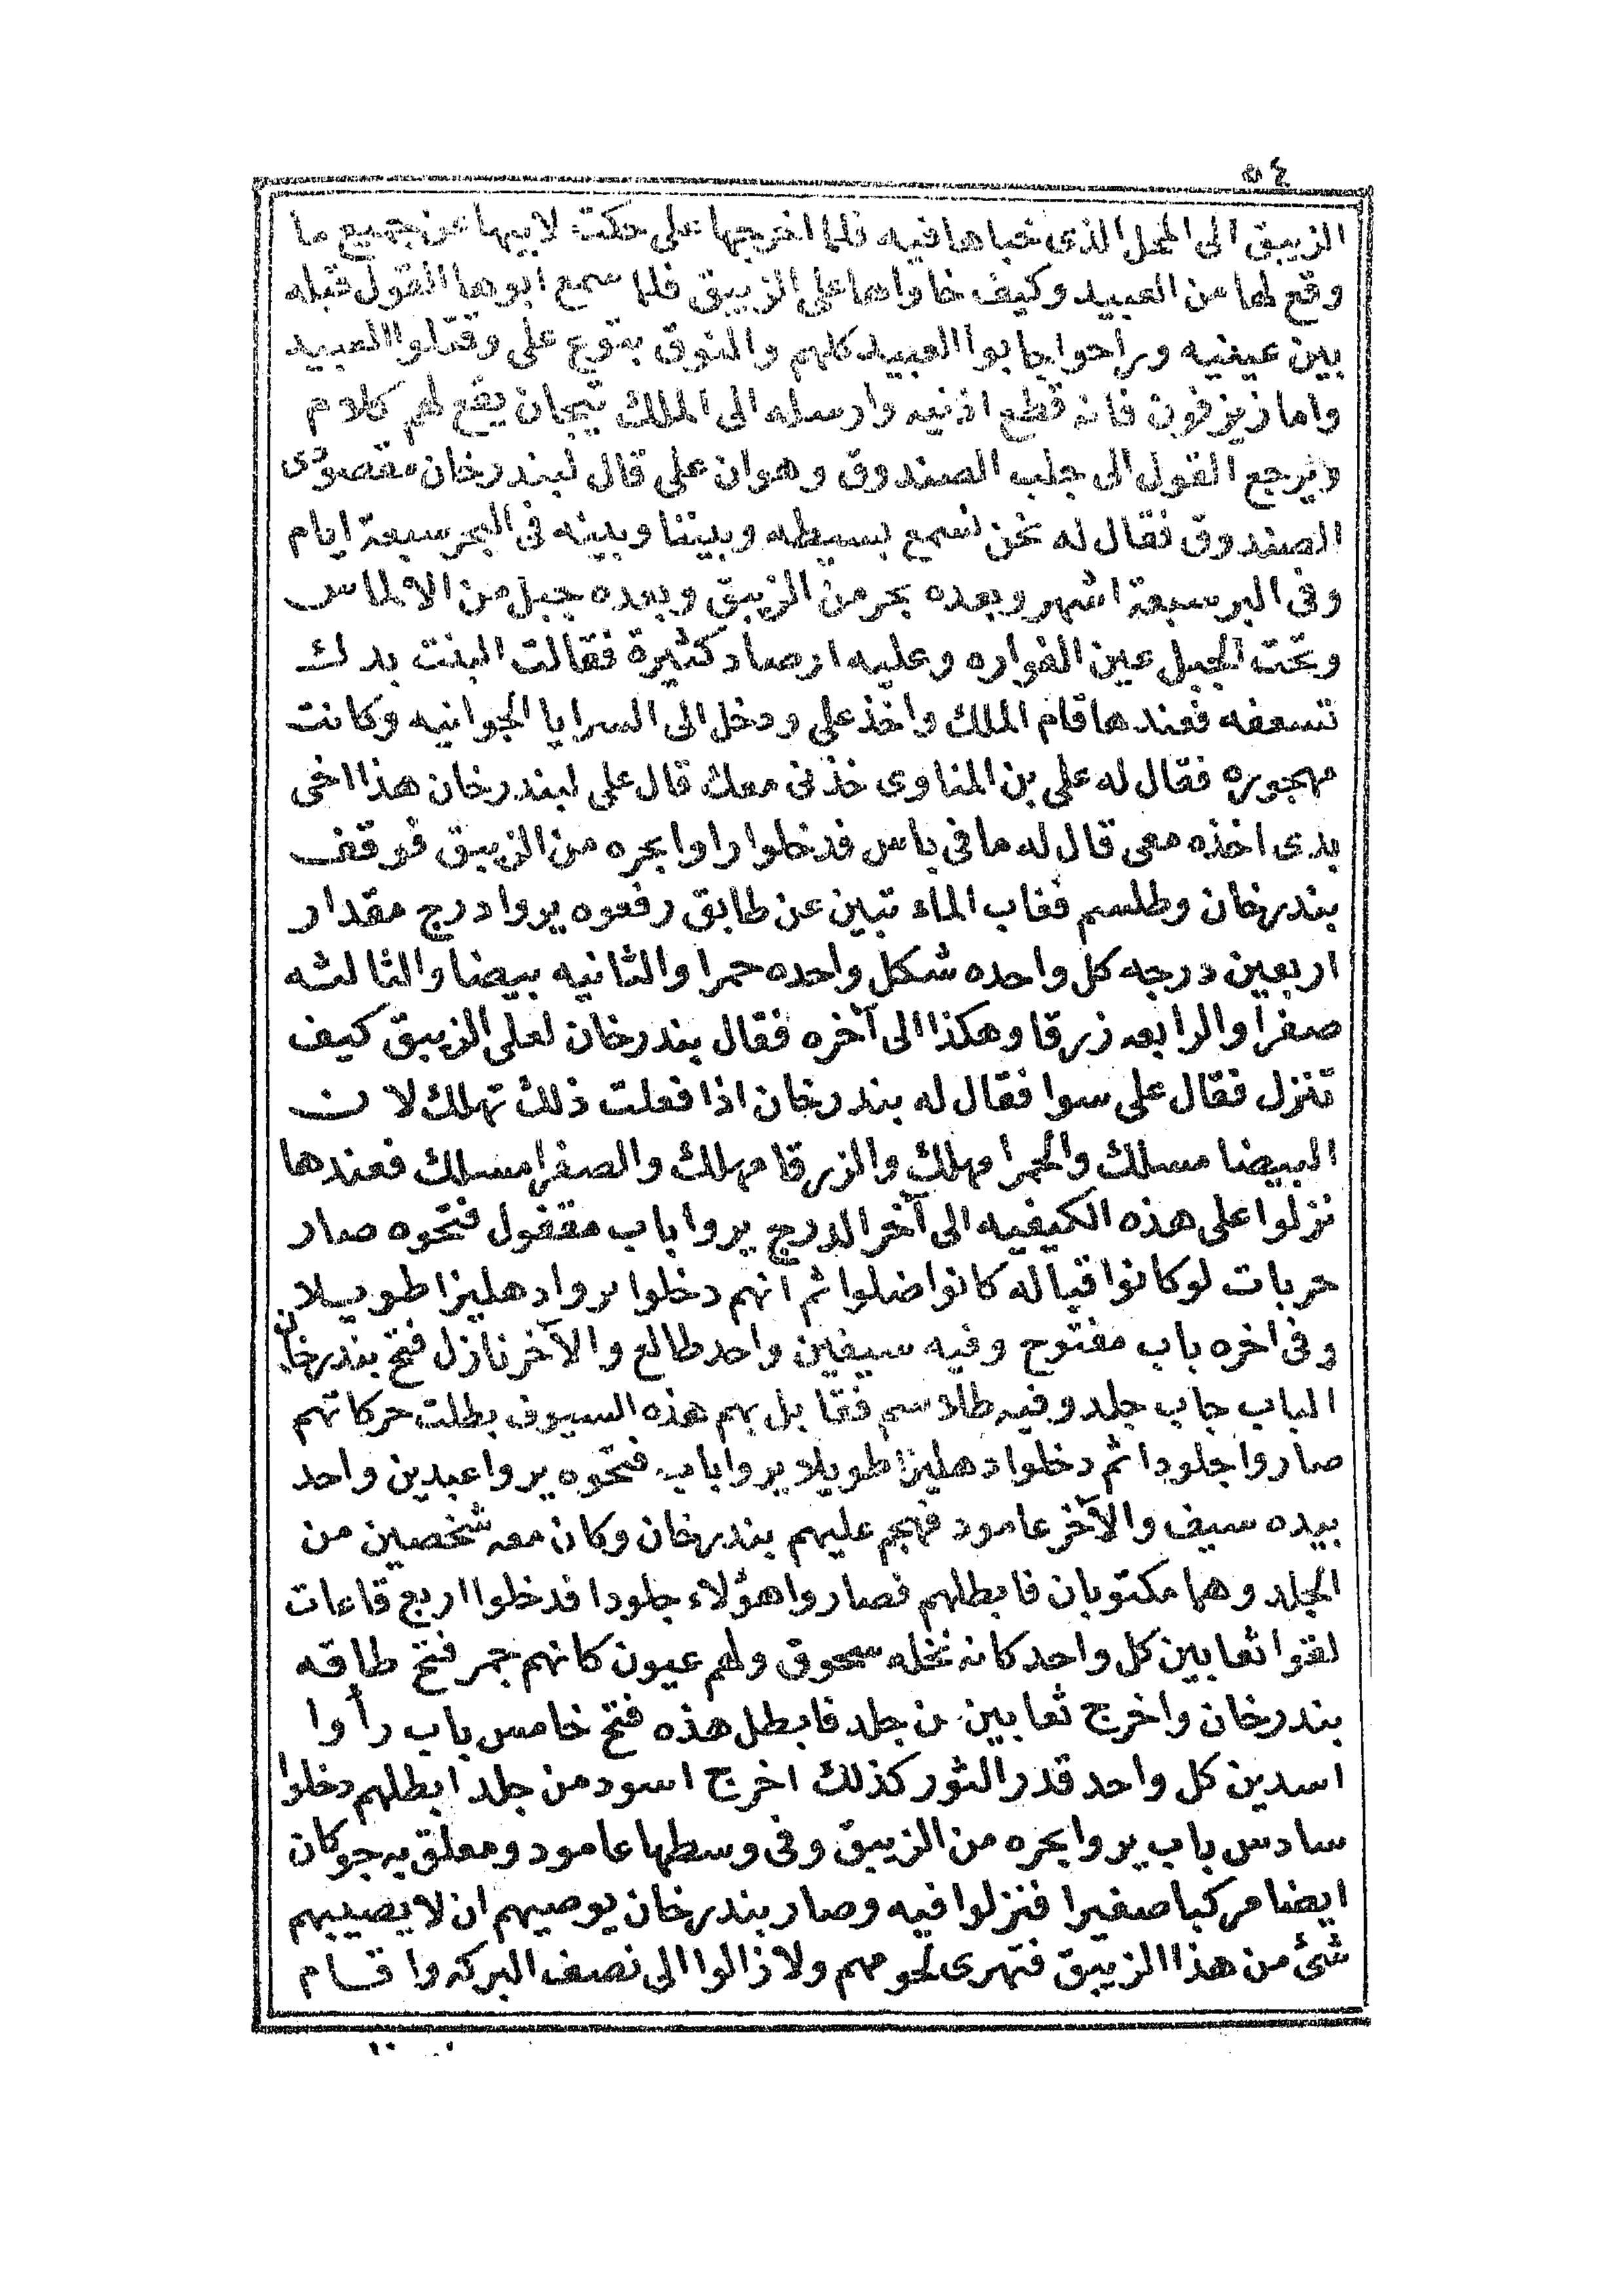 ٥٤
الزيبق الى المحل الذى خباها فيه فلما اخرجها على حكت لابيها عن جميع ما
وقع لها من العبيد وكيف خاواها على الزيبق فلما سمع ابوها القول قبله
بين عينيه وراحوا جابوا العبيد كلهم والنوق بتوع على وقتلوا العبيد
واما زيزفون فانه قطع اذنيه وارسله الى الملك تيجان يقع لهم كلام
ويرجع القول الى جلب الصندوق وهو ان على قال لبندرخان مقصودى
الصندوق فقال له نحن نسمع بسيطه وبيننا وبينه فى البحر سبعة ايام
وفى البر سبعة اشهر وبعده بحر من الزيبق وبعده جبل من الالماس
وتحت الجبل عين الفواره وعليه ارصاد كثيرة فقالت البنت بدك
تسعفه فعندها قام الملك واخذ على ودخل الى السرايا الجوانيه وكانت
مهجوره فقال له على بن المناوى خذنى معك قال على لبندرخان هذا اخى
بدى اخذه معى قال له ما فى باس فدخلوا راوا بحره من الزيبق فوقف
بندرخان وطلسم فغاب الماء تبين عن طابق رفعوه يروا درج مقدار
اربعين درجه كل واحده شكل واحده حمرا والثانيه بيضا والثالثه
صفرا والرابعه زرقا وهكذا الى آخره فقال بندرخان لعلى الزيبق كيف
تنزل فقال على سوا فقال له بندرخان اذا فعلت ذلك تهلك لان
البيضا مسلك والحمرا مهلك والزرقا مهلك والصفرا مسلك فعندها
نزلوا على هذه الكيفيه الى آخر الدرج يروا باب مقفول فتحوه صار
حربات لو كانوا قباله كانوا ضلوا ثم انهم دخلوا يروا دهليزا طويلا
وفى اخره باب مفتوح وفيه سيفين واحد طالع والآخر نازل فتح بندرخان
الباب جاب جلد وفيه طلاسم فقابل بهم هذه السيوف بطلت حركاتهم
صاروا جلودا ثم دخلوا دهليزا طويلا يروا باب فتحوه يروا عبدين واحد
بيده سيف والآخر عامود فهجم عليهم بندرخان وكان معه شخصين من
الجلد وهما مكتوبان فابطلهم فصاروا هؤلاء جلودا فدخلوا اربع قاعات
لقوا ثعابين كل واحد كانه نخله سحوق ولهم عيون كانهم جمر فتح طاقه
بندرخان واخرج ثعابين من جلد فابطل هذه فتح خامس باب رأوا
اسدين كل واحد قدر الثور كذلك اخرج اسود من جلد ابطلهم دخلوا
سادس باب يروا بحره من الزيبق وفى وسطها عامود ومعلق به جوكان
ايضا مركبا صغيرا فنزلوا فيه وصار بندرخان يوصيهم ان لا يصيبهم
شئ من هذا الزيبق فتهرى لحومهم ولا زالوا الى نصف البركه واقام